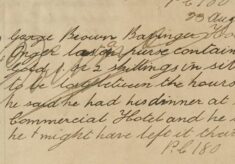 P.C 180
23 Aug
George Brown
purse contain
Gold 1 or 2 shillings in
to be lost between the hours
he said he had his dinner at
Commercial Hotel and he
he might have left it there
P.C 180